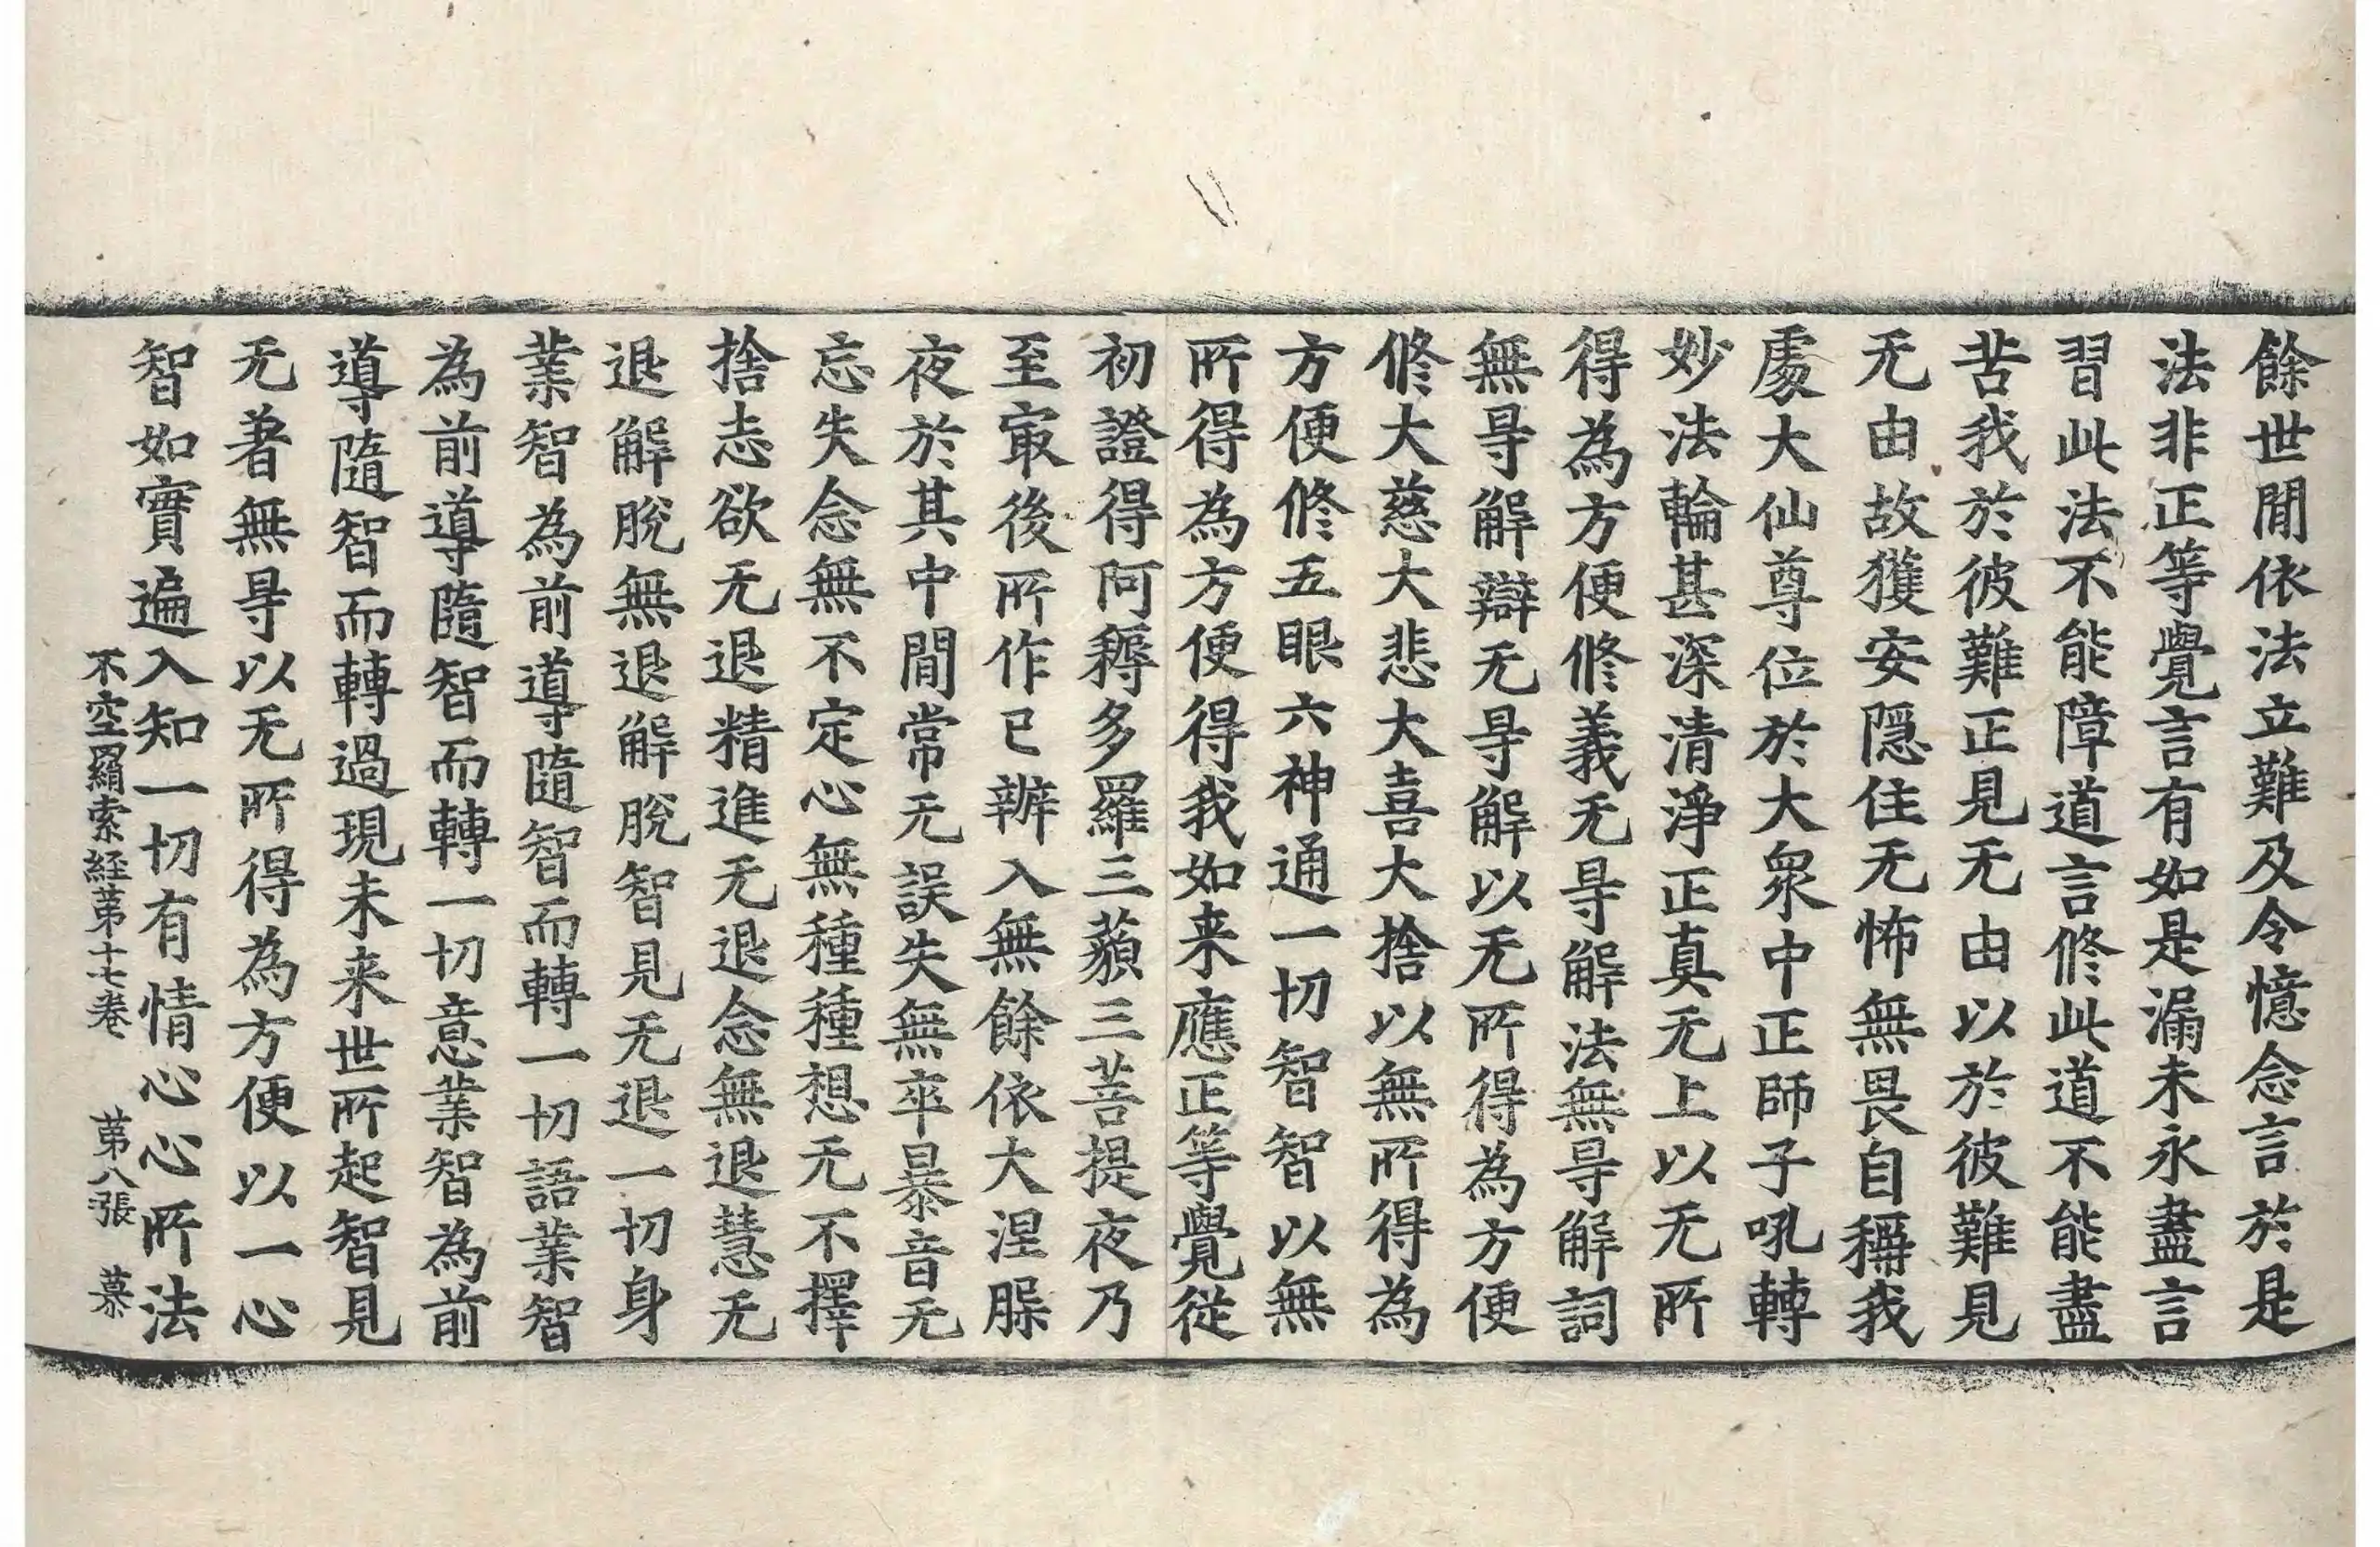 餘世閒依法立難及令憶念言於是
法非正等覺言有如是漏未永盡言
習此法不能障道言修此道不能盡
苦我於彼難正見无由以於彼難見
无由故獲安隱住无怖無畏自稱我
處大仙尊位於大衆中正師子吼轉
妙法輪甚深清淨正真无上以无所
得為方便修義无㝵解法無㝵解詞
無㝵解辯无㝵解以无所得為方便
修大慈大悲大喜大捨以無所得為
方便修五眼六神通一切智智以無
所得為方便得我如来應正等覺從
初證得阿耨多羅三藐三菩提夜乃
至㝡後所作已辦入無餘依大涅槃
夜於其中閒常无誤失無卒暴音无
忘失念無不定心無種種想无不擇
捨志欲无退精進无退念無退慧无
退解脫無退解脫智見无退一切身
業智為前導隨智而轉一切語業智
為前導隨智而轉一切意業智為前
導隨智而轉過現未来世所起智見
无著無㝵以无所得為方便以一心
智如實遍入知一切有情心心所法
不空羂索経苐十七卷　苐八張　慕